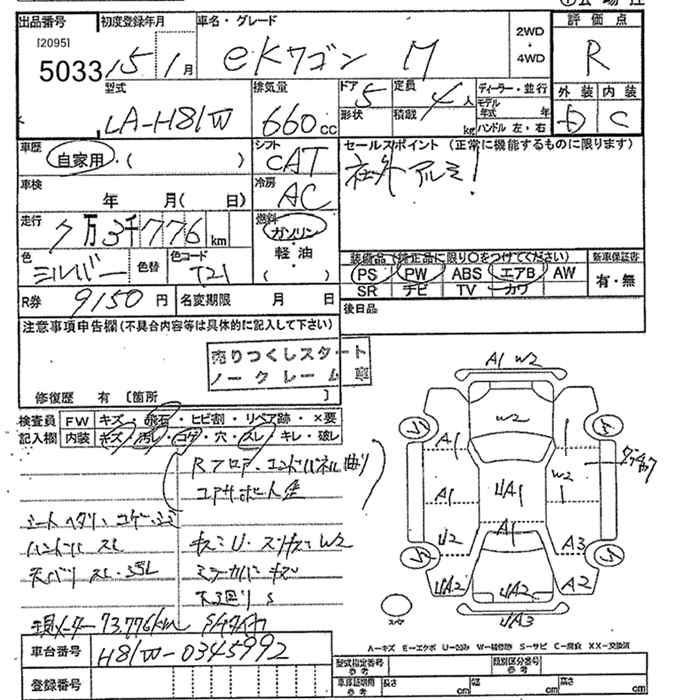 出品番号 初度登録年月 車名・グレード
[2095]
5033 15 1月 eKワゴン M 2WD・4WD
評価点
R
型式 排気量 ドア 定員 ディーラー・並行
LA-H81W 660cc 5 4人
形状 積載 kg モデル年式 年 ハンドル 左・右
外装 内装
D C
車歴 自家用・( ) シフト CAT
車検 年 月( 日) 冷房 AC
走行 7万3千776km 燃料 ガソリン
軽油
( )
色 シルバー 色替 色コード T21
R券 9150円 名変期限 月 日
セールスポイント (正常に機能するものに限ります)
社外アルミ!
装備品(純正品に限り○をつけてください) 新車保証書
PS PW ABS エアB AW 有・無
SR ナビ TV カワ
後日品
注意事項申告欄(不具合内容等は具体的に記入して下さい)
売りつくしスタート
ノークレーム車
修復歴 有 〔箇所 〕
検査員記入欄 FW キズ・飛石・ヒビ割・リペア跡・×要
内装 キズ・汚レ・コゲ・穴・スレ・キレ・破レ
Rフロア・エンドパネル曲り
コアサポート凹
シートヘタリ・コゲ
ハンドルスレ
天バリスレ・汚レ
現メーター73,776km
キズU・スリキズW2
下廻りS
A1 W2
W2
A1
W2
A1
UA1
A1
U2
A3
UA2
UA2
A2
UA3
スペア
A-キズ E-エクボ U-凹み W-補修跡 S-サビ C-腐食 XX-交換済
車台番号 H81W-0345992
登録番号
型式指定番号 参考 類別区分番号 参考
車庫証明用 参考 長さ cm 幅 cm 高さ cm